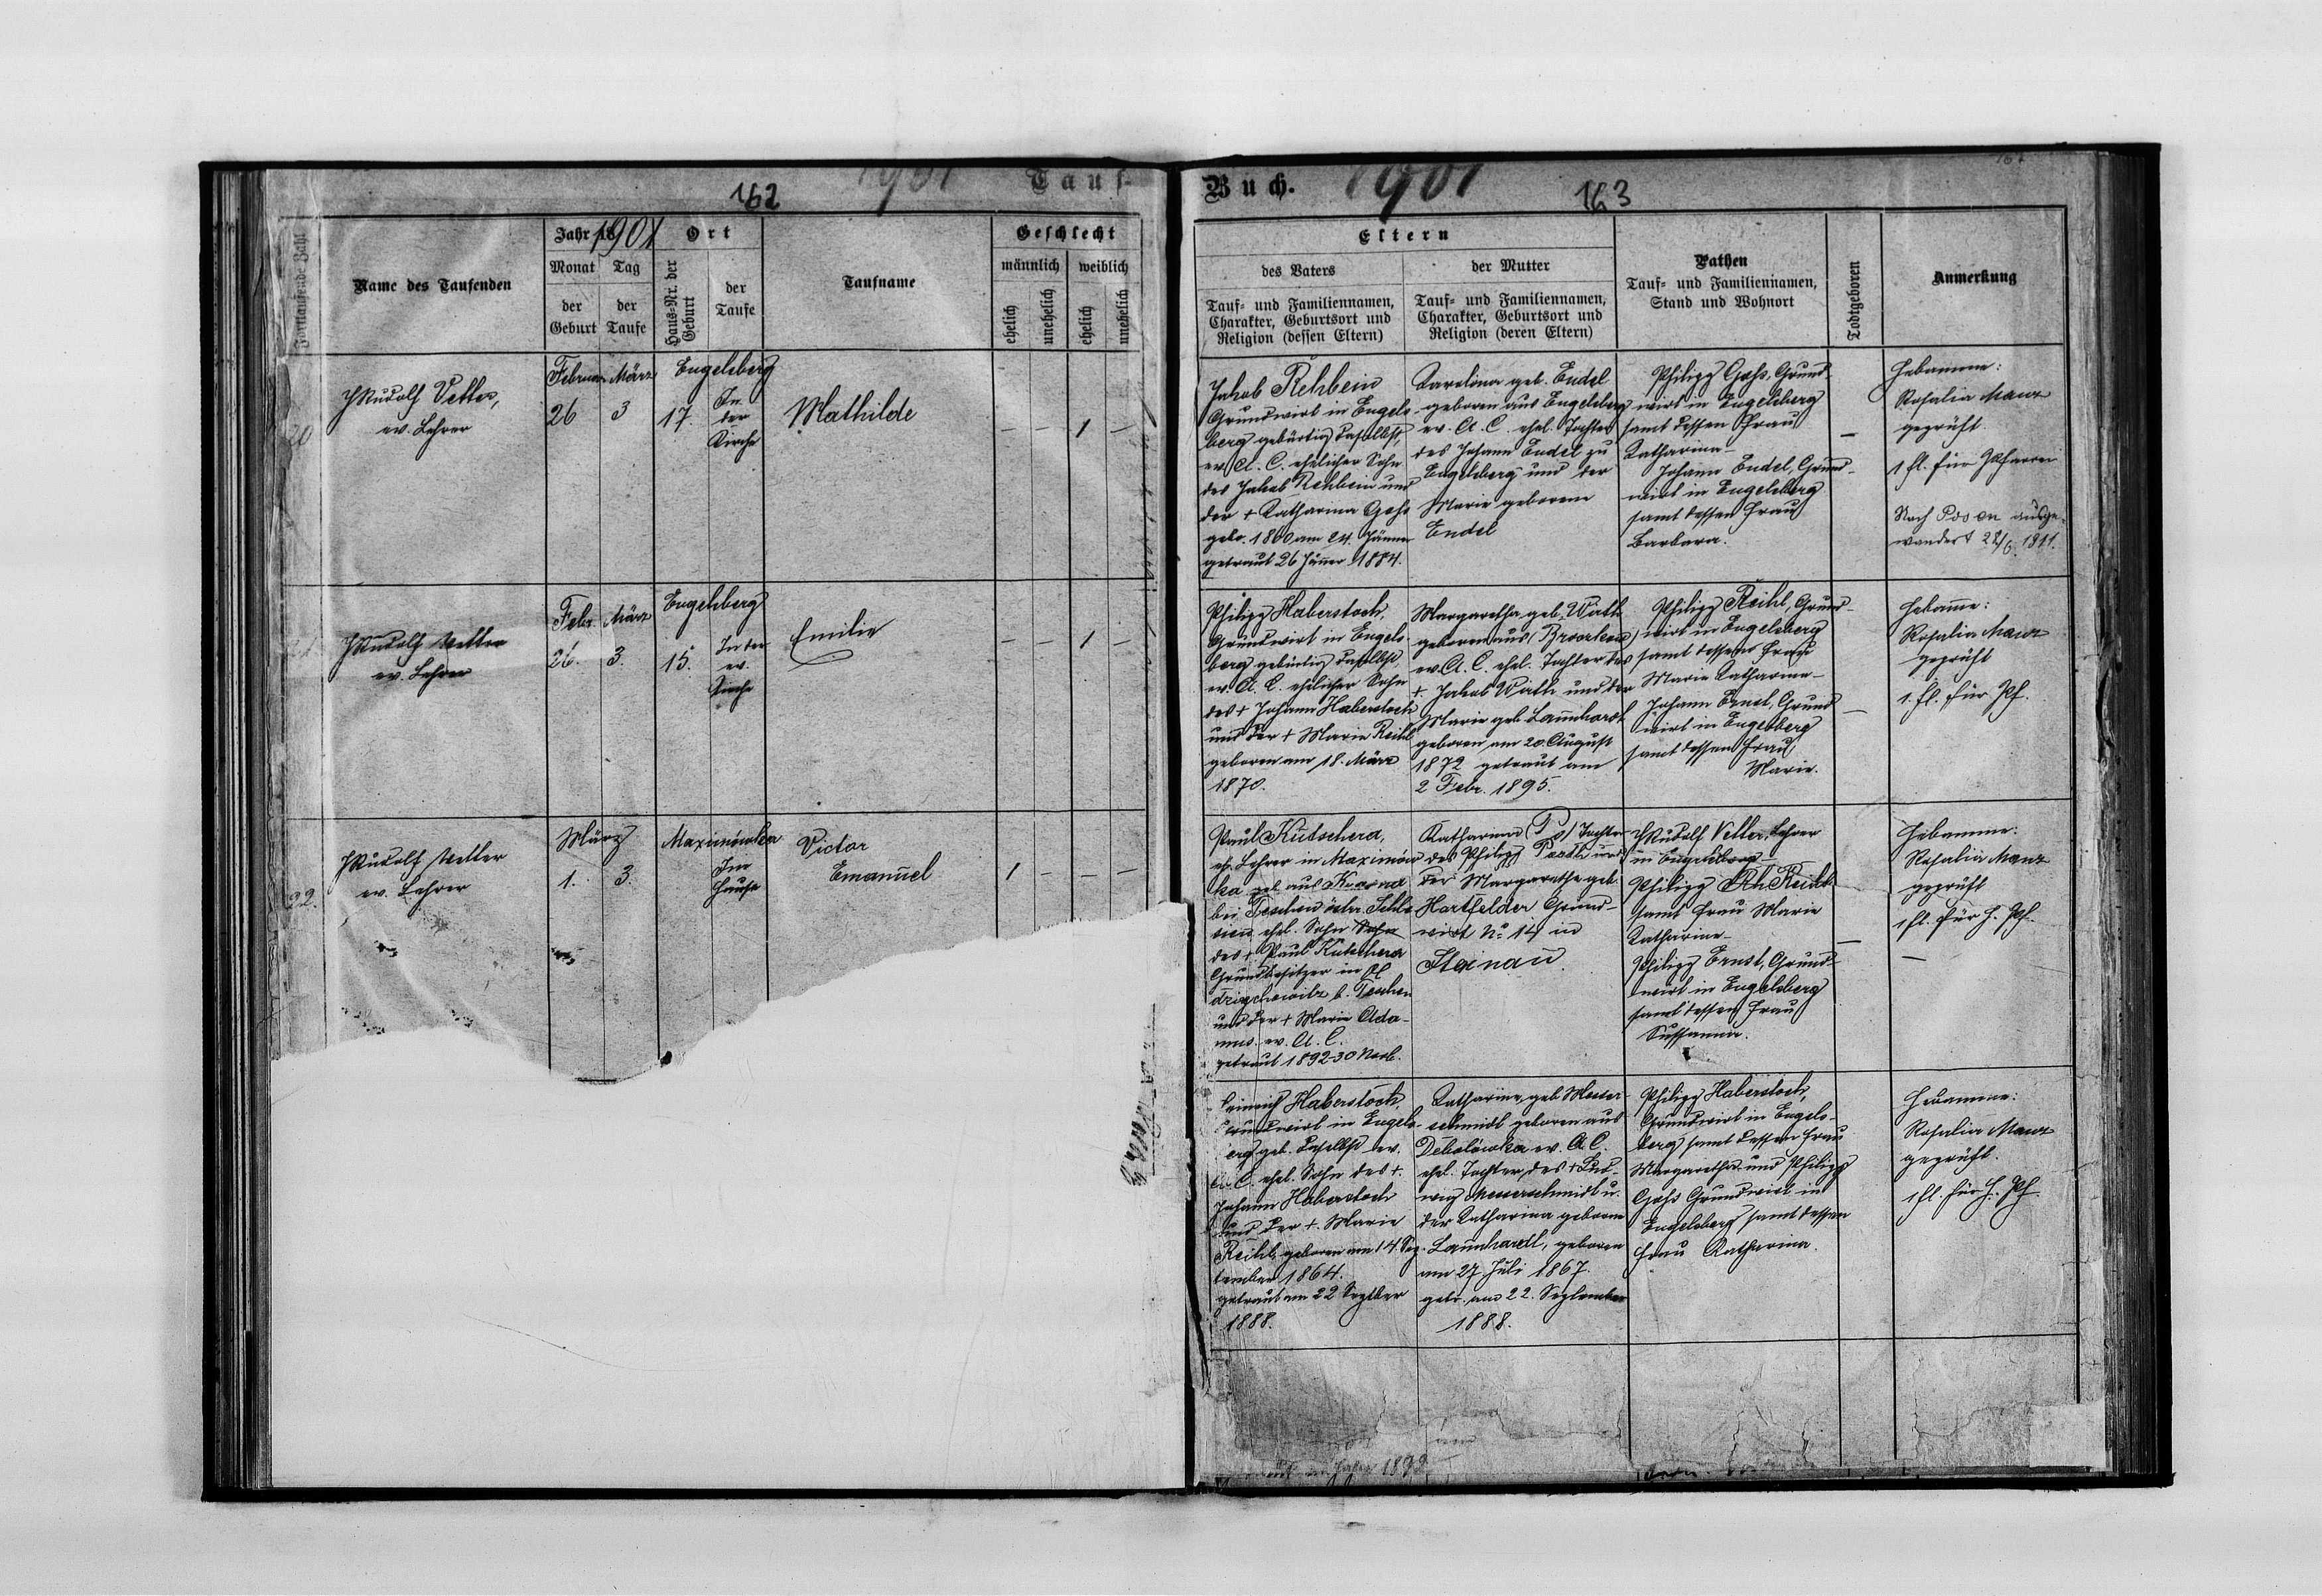 1901 Tauf-
162
Fortlaufende Zahl
Name des Taufenden
Jahr 1901
Monat der Geburt
Tag der Taufe
Ort
Haus-Nr. der Geburt
der Taufe
Taufname
Geschlecht
männlich weiblich
ehelich unehelich ehelich unehelich
20
Rudolf Vetter,
ev. Lehrer
Februar März
26 3
Engelsberg
17.
In
der
Kirche
Mathilde
— — 1 —
21
Rudolf Vetter
ev. Lehrer
Febr. März
26. 3.
Engelsberg
15.
In der
ev.
Kirche
Emilie
— — 1 —
22.
Rudolf Vetter
ev. Lehrer
März
1. 3.
Maximówka
Im
Hause
Victor
Emanuel
1 — — —
Buch. 1901
163
Eltern
des Vaters
Tauf- und Familiennamen,
Charakter, Geburtsort und
Religion (dessen Eltern)
der Mutter
Tauf- und Familiennamen,
Charakter, Geburtsort und
Religion (deren Eltern)
Pathen
Tauf- und Familiennamen,
Stand und Wohnort
Todtgeboren
Anmerkung
Jakob Rehbein
Grundwirt in Engels-
berg gebürtig daselbst,
ev. A. C. ehelicher Sohn
des Jakob Rehbein und
der + Katharina Gass
gebr. 1860 am 24. Jänner
getraut 26 Jänner 1884.
Karolina geb. Endel
geboren aus Engelsberg
ev. A. C. ehel. Tochter
des Johann Endel zu
Engelsberg und der
Marie geborene
Endel
Philipp Gass, Grund-
wirt in Engelsberg
samt dessen Frau
Katharina-
Johann Endel, Grund-
wirt in Engelsberg
samt dessen Frau
Barbara.
—
Hebamme:
Rosalia Manz
geprüft.
1 fl. für Pfarrei
Nach Posen ausge-
wandert
Philipp Haberstock,
Grundwirt in Engels-
berg gebürtig daselbst
ev. A. C. ehelicher Sohn
des + Johann Haberstock
und der + Marie Reihl
geboren am 18. März
1870.
Margaretha geb. Wirth
geboren aus
ev. A. C. ehel. Tochter des
+ Jakob Wirth und der
Marie geb. Launhardt
geboren am 20. August
1872 getraut am
2 Febr. 1895.
Philipp Reihl, Grund-
wirt in Engelsberg
samt dessen Frau
Marie Katharina-
Johann Ernst, Grund-
wirt in Engelsberg
samt dessen Frau
Marie.
—
Hebamme:
Rosalia Manz
geprüft
1. fl. für Pf.
Paul Kutschera,
ev. Lehrer in Maximów-
ka geb. aus
bei Teschen östr. Schle-
sien ehel. Sohn
des + Paul Kutschera
Grundbesitzer in
b. Teschen
und der + Marie Ada-
mus. ev. A. C.
getraut 1892 30 Novb.
Katharina Tochter
des Philipp und
der Margarethe geb.
Hartfelder Grund-
wirt No. 14 in
Steinau.
Rudolf Vetter, Lehrer
in Engelsberg-
Philipp Reihl
samt Frau Marie
Katharine-
Philipp Ernst, Grund-
wirt in Engelsberg
samt dessen Frau
Sussanna.
—
Hebamme:
Rosalia Manz
geprüft
1 fl. für H. Pf.
—
Heinrich Haberstock,
Grundwirt in Engels-
berg geb. daselbst ev.
A. C. ehel. Sohn des +
Johann Haberstock
und der +. Marie
Reihl, geboren am 14. Sep-
tember 1864.
getraut am 22 Septber
1888.
Katharine, geb. Messer-
schmidt geboren aus
Debolówka ev. A. C.
ehel. Tochter des + Lud-
wig Messerschmidt u.
der Katharina geborene
Launhardt, geboren
am 27 Juli 1867.
getr. am 22. September
1888.
Philipp Haberstock,
Grundwirt in Engels-
berg samt dessen Frau
Margaretha und Philipp
Gass Grundwirt in
Engelsberg samt dessen
Frau Katharina.
Hebamme:
Rosalia Manz
geprüft.
1 fl. für H. Pf.